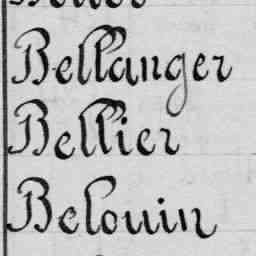 Bellanger
Bellier
Belouin